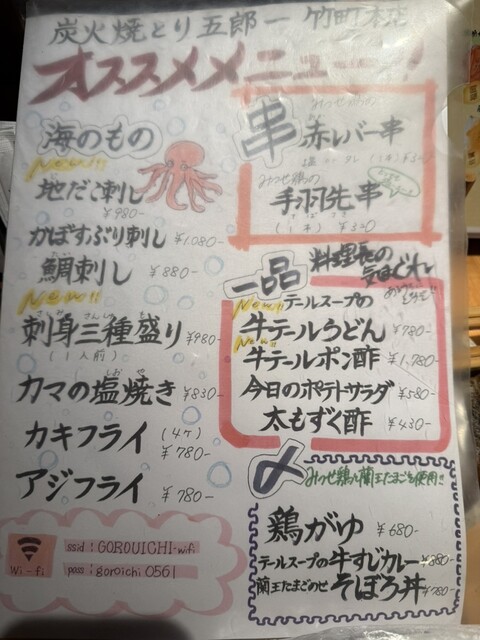 炭火焼とり五郎一 竹町本店
オススメメニュー!
海のもの
New!!!
地だこ刺し
¥980-
かぼすぶり刺し ¥1,080-
鯛刺し ¥880-
New!!
刺身三種盛り ¥980-
(1人前)
カマの塩焼き ¥830-
カキフライ (4ケ)
¥780-
アジフライ ¥780-
Wi-Fi
ssid:GOROUICHI-wifi
pass:goroichi0561
串
赤レバー串
みつせ鶏の
手羽先串
(1本) ¥330
一品
料理長の
気まぐれ
New!!
テールスープの
牛テールうどん ¥780-
New!!
牛テールポン酢 ¥1,780
今日のポテトサラダ ¥580-
太もずく酢 ¥430-
〆
みつせ鶏&蘭王たまご使用!!
鶏がゆ ¥680-
テールスープの牛すじカレー ¥880-
蘭王たまごのせ そぼろ丼 ¥780-